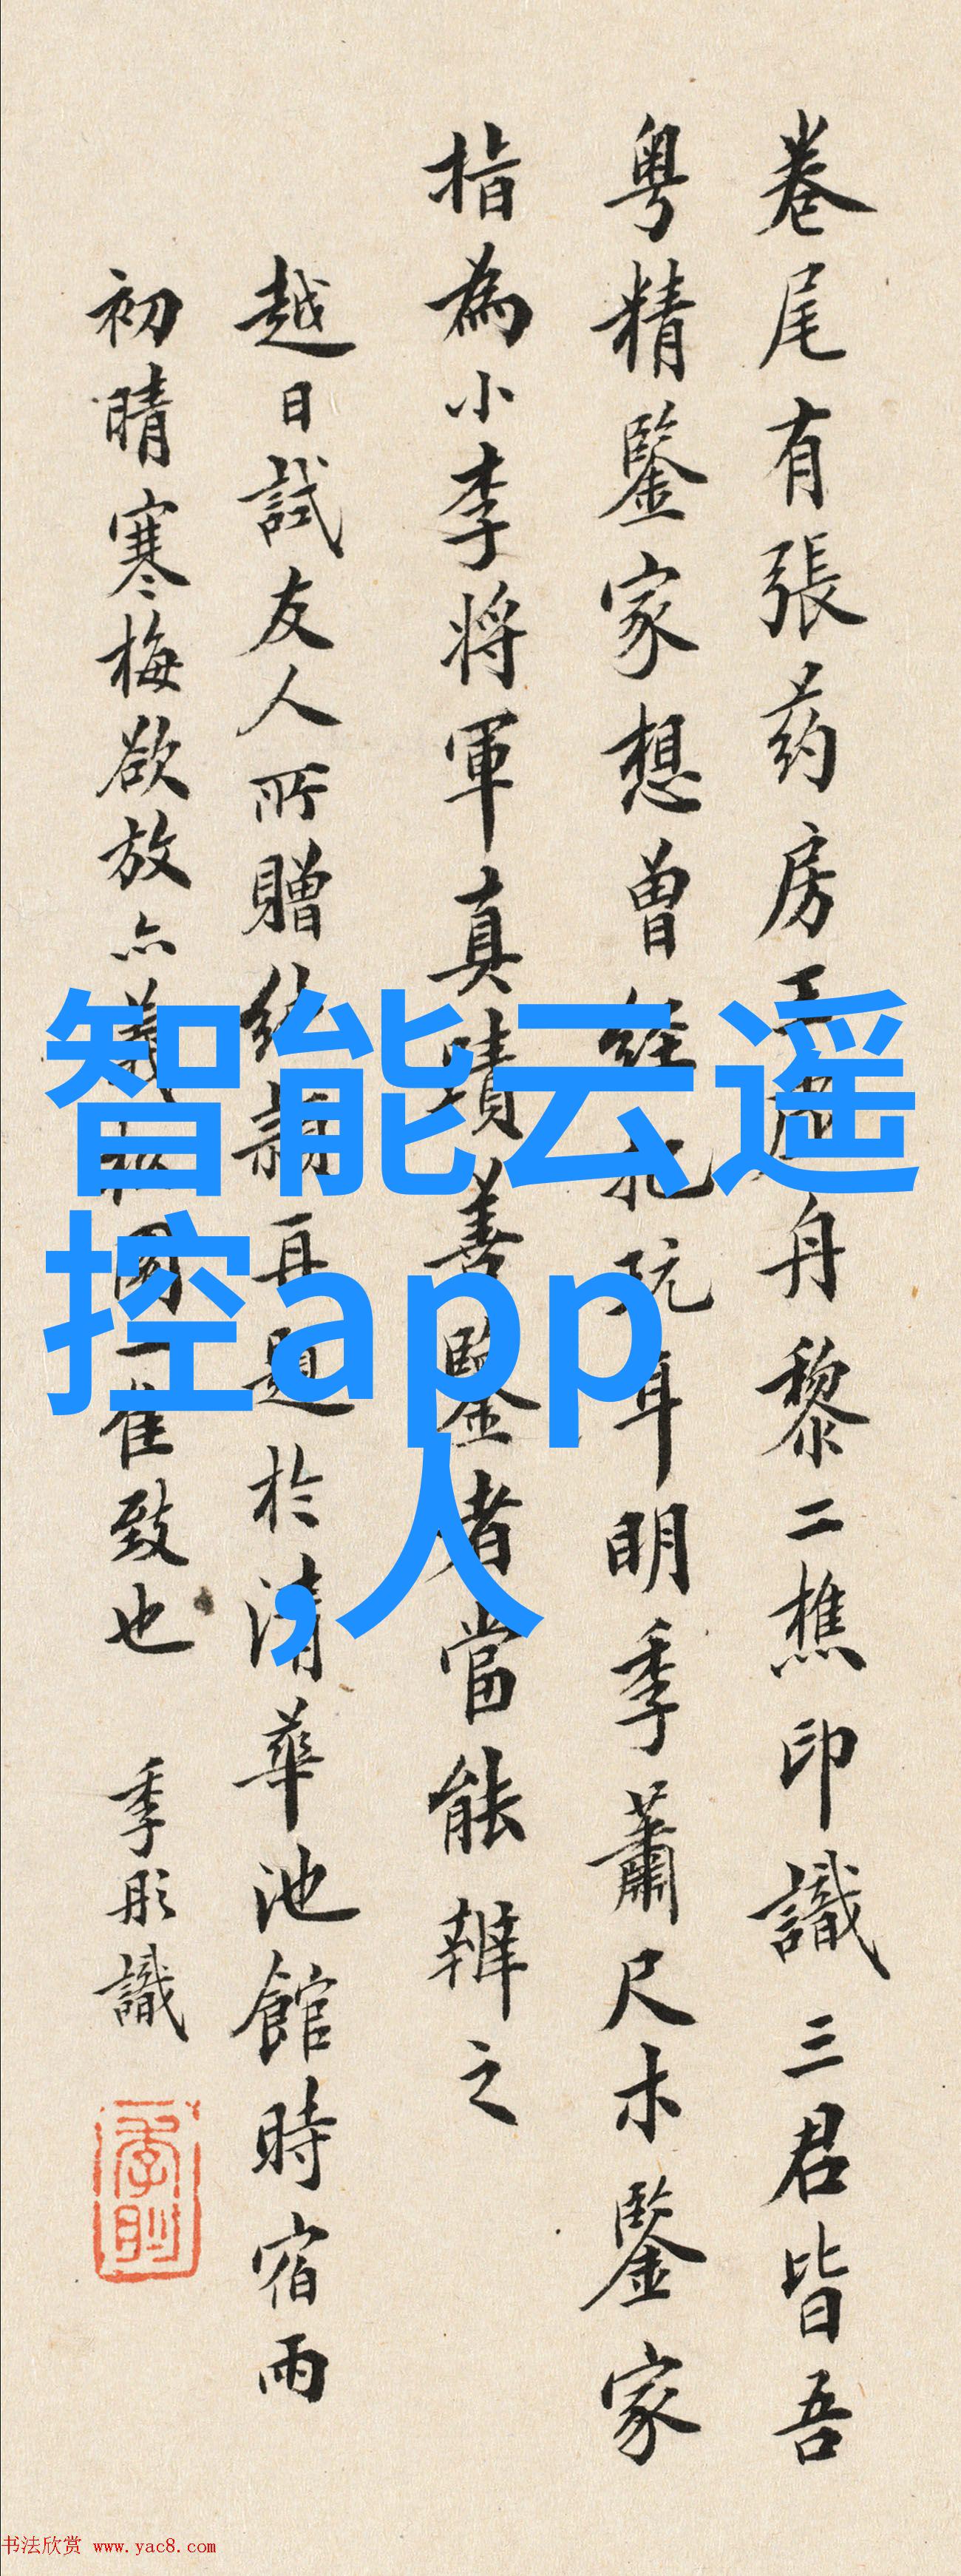 卷尾有張药房王舟黎二樵印識三君皆吾
粤精鑒家想曾經玩耳明季蕭尺木鑒家
指為小李将軍真蹟善鑒者當能辨之
越日試友人所贈再題於清華池館時宿雨
初晴寒梅欲放亦園一佳致也 季彤識
智能云遥
控app
,人
书法欣赏 www.yac8.com